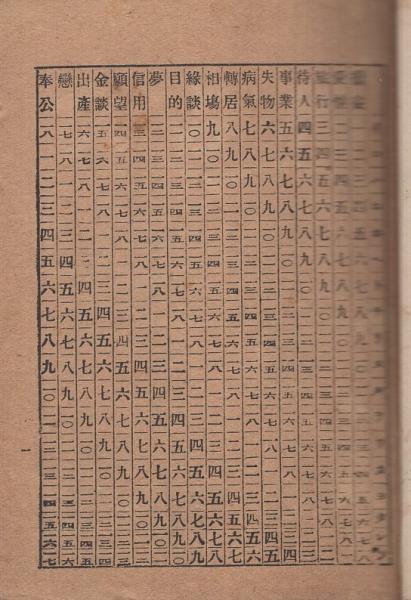 旅行 三 四 五 六 七 八 九 一〇 一一 一二 一三 一四 一五 一六 一七 一八 一 二
待人 四 五 六 七 八 九 一〇 一一 一二 一三 一四 一五 一六 一七 一八 一 二 三
事業 五 六 七 八 九 一〇 一一 一二 一三 一四 一五 一六 一七 一八 一 二 三 四
失物 六 七 八 九 一〇 一一 一二 一三 一四 一五 一六 一七 一八 一 二 三 四 五
病氣 七 八 九 一〇 一一 一二 一三 一四 一五 一六 一七 一八 一 二 三 四 五 六
轉居 八 九 一〇 一一 一二 一三 一四 一五 一六 一七 一八 一 二 三 四 五 六 七
相場 九 一〇 一一 一二 一三 一四 一五 一六 一七 一八 一 二 三 四 五 六 七 八
緣談 一〇 一一 一二 一三 一四 一五 一六 一七 一八 一 二 三 四 五 六 七 八 九
目的 一一 一二 一三 一四 一五 一六 一七 一八 一 二 三 四 五 六 七 八 九 一〇
夢 一二 一三 一四 一五 一六 一七 一八 一 二 三 四 五 六 七 八 九 一〇 一一
信用 一三 一四 一五 一六 一七 一八 一 二 三 四 五 六 七 八 九 一〇 一一 一二
願望 一四 一五 一六 一七 一八 一 二 三 四 五 六 七 八 九 一〇 一一 一二 一三
金談 一五 一六 一七 一八 一 二 三 四 五 六 七 八 九 一〇 一一 一二 一三 一四
出產 一六 一七 一八 一 二 三 四 五 六 七 八 九 一〇 一一 一二 一三 一四 一五
戀 一七 一八 一 二 三 四 五 六 七 八 九 一〇 一一 一二 一三 一四 一五 一六
奉公 一八 一 二 三 四 五 六 七 八 九 一〇 一一 一二 一三 一四 一五 一六 一七
一